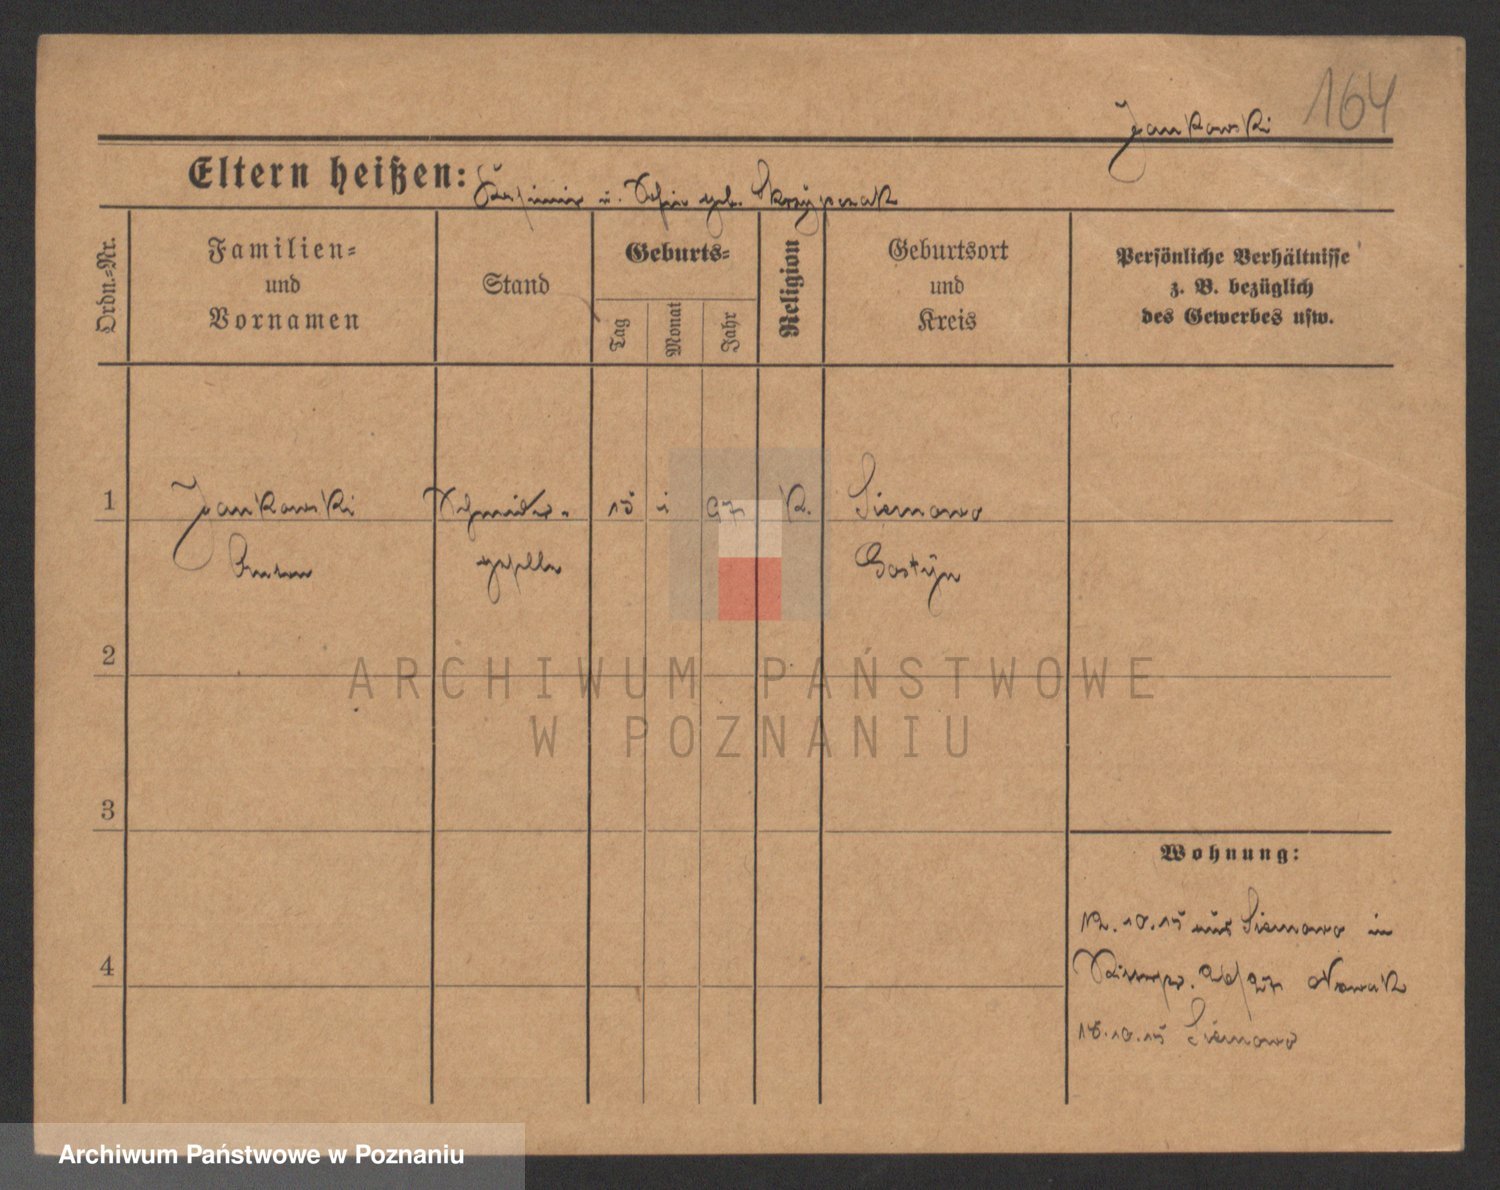 164
Jankowski
Eltern heißen: Kasimir u. geb. Skrzypczak
Ordn.=Nr.
Familien=
und
Vornamen
Stand
Geburts=
Tag
Monat
Jahr
Religion
Geburtsort
und
Kreis
Persönliche Verhältnisse
z. B. bezüglich
des Gewerbes usw.
1 Jankowski 15 97 K. Siemowo
geselle Gostyn
2
3
4
ARCHIWUM PAŃSTWOWE
W POZNANIU
Wohnung:
12.10.15 aus Siemowo in
Nowak
18.10.15 Siemowo
Archiwum Państwowe w Poznaniu